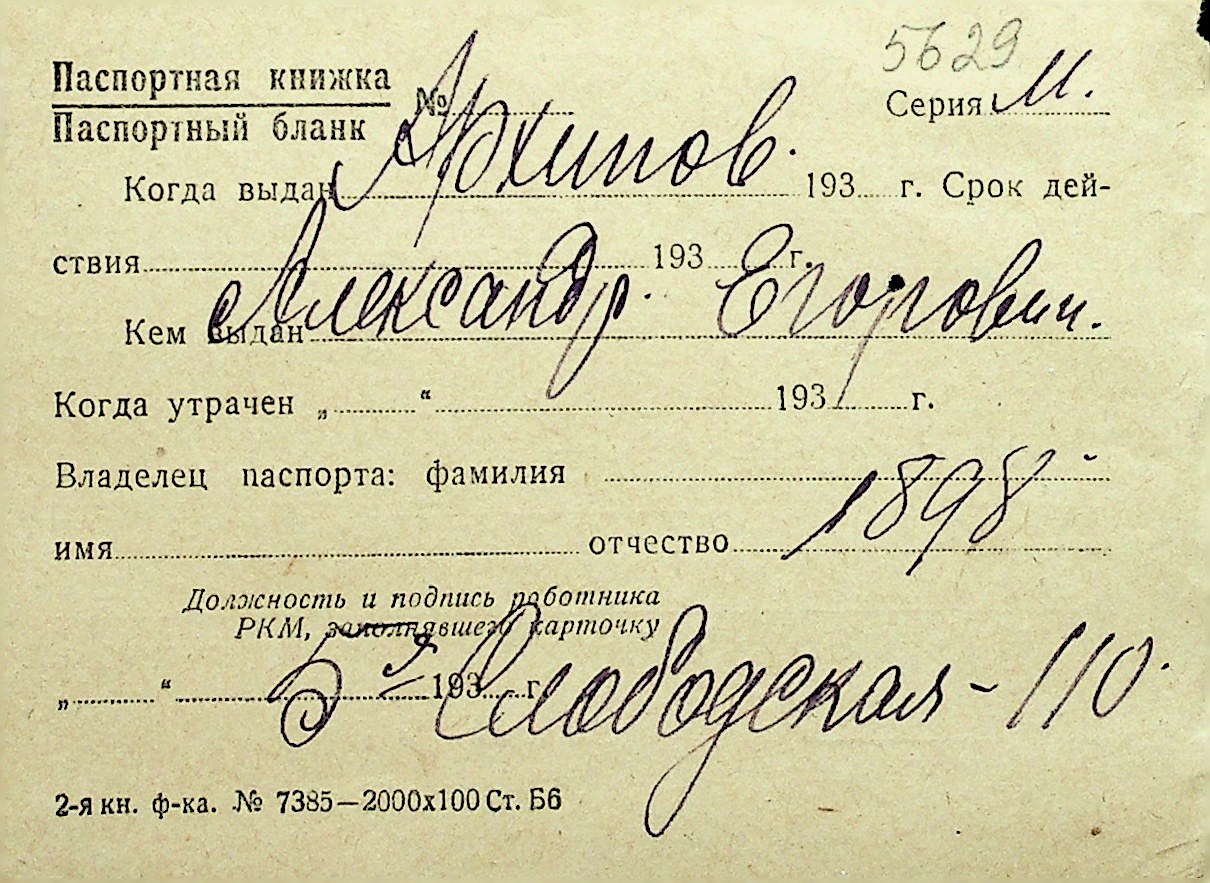 5629
Паспортная книжка
Паспортный бланк
№ Серия М.
Архипов.
Когда выдан 193 г. Срок дей-
ствия 193 г.
Александр. Егорович.
Кем выдан
Когда утрачен „ “ 193 г.
Владелец паспорта: фамилия
1898
имя отчество
Должность и подпись работника
РКМ, заполнявшего карточку
5я Слободская - 110.
„ “ 193 г.
2-я кн. ф-ка. № 7385—2000х100 Ст. Б6